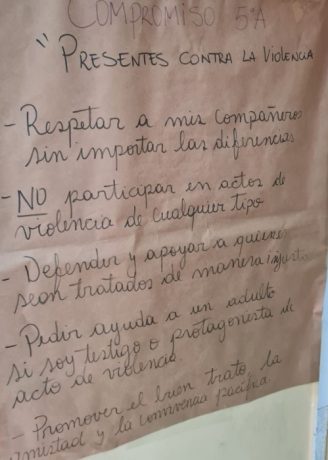 COMPROMISO 5ºA
"PRESENTES CONTRA LA VIOLENCIA
- Respetar a mis compañeros
sin importar las diferencias
- NO participar en actos de
violencia de cualquier tipo
- Defender y apoyar a quienes
sean tratados de manera injusta
- Pedir ayuda a un adulto
si soy testigo o protagonista de
acto de violencia.
- Promover el buen trato, la
amistad y la convivencia pacífica.